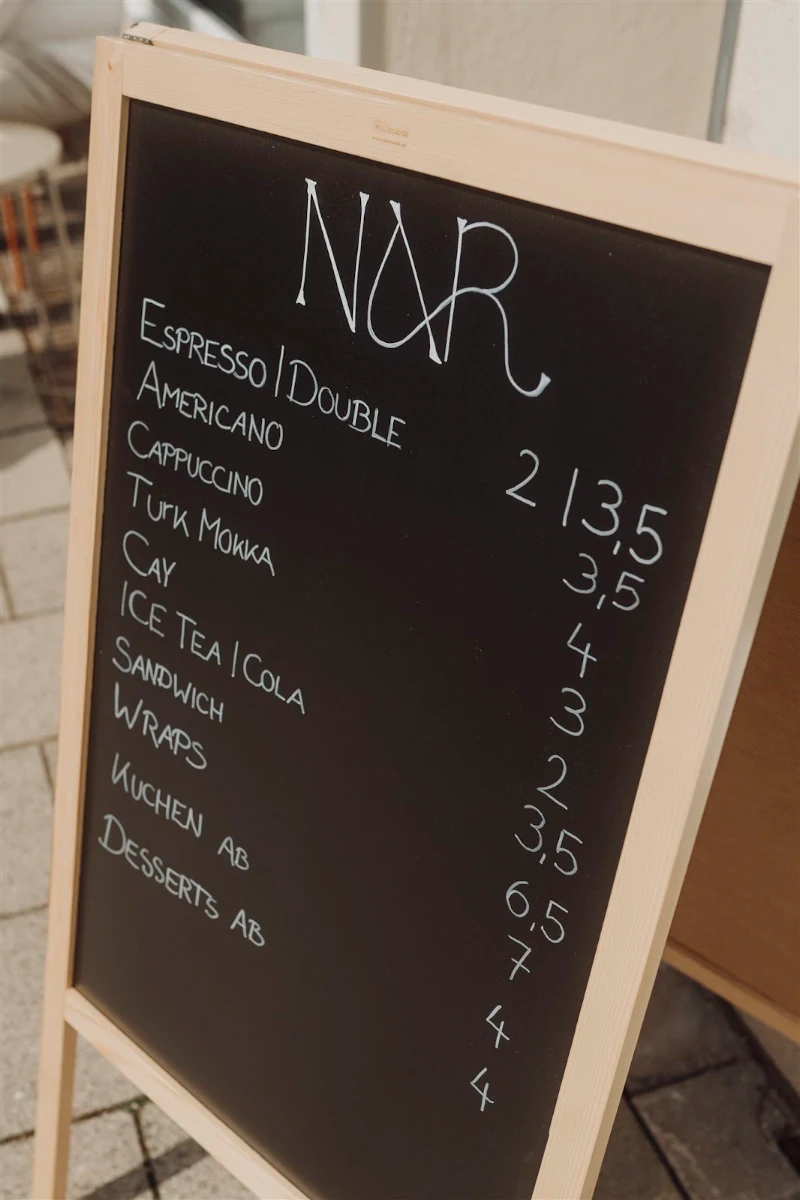 NAR
ESPRESSO | DOUBLE 2 | 3,5
AMERICANO 3,5
CAPPUCCINO 4
TURK MOKKA 3
CAY 2
ICE TEA | COLA 3,5
SANDWICH 6,5
WRAPS 7
KUCHEN AB 4
DESSERTS AB 4